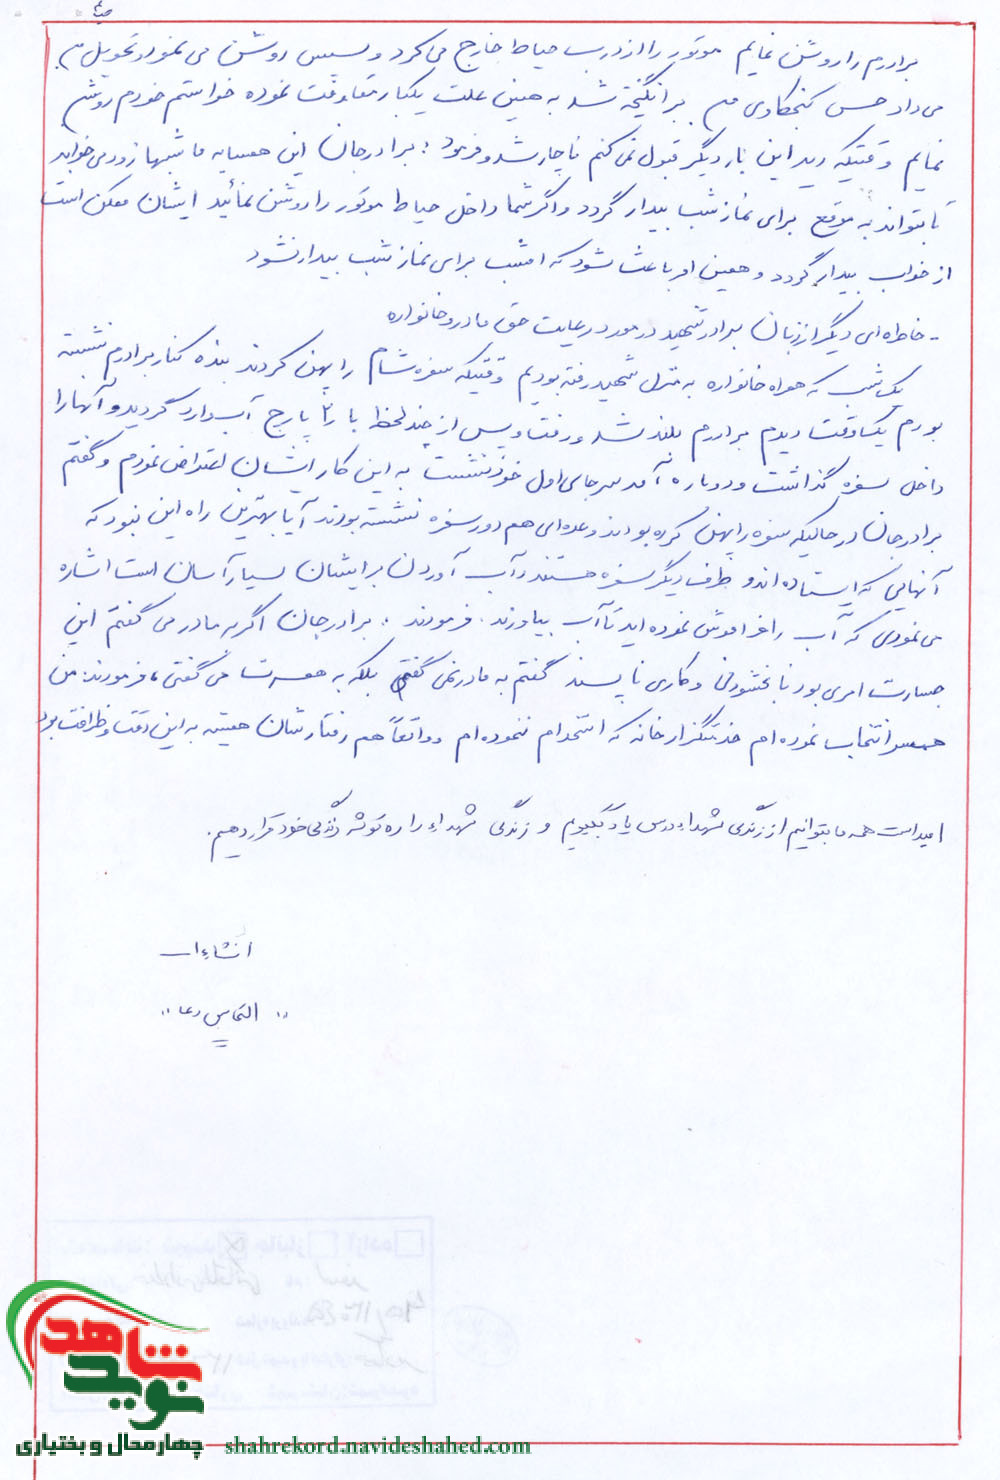 برادرم را روشن نمایم موتور را از درب حیاط خارج می کرد و سپس روشن می نمود و تحویل من
می داد حس کنجکاوی من برانگیخته شد به همین علت یکبار مقاومت نموده خواستم خودم روشن
نمایم وقتیکه دید این بار دیگر قبول نمی کنم ناچار شد و فرمود: برادر جان این همسایه ما شبها زود می خوابد
تا بتواند به موقع برای نماز شب بیدار گردد و اگر شما داخل حیاط موتور را روشن نمائید ایشان ممکن است
از خواب بیدار گردد و همین امر باعث شود که امشب برای نماز شب بیدار نشود
- خاطره ای دیگر از زبان برادر شهید در مورد رعایت حق مادر و خانواده
یک شب که همراه خانواده به منزل شهید رفته بودیم وقتیکه سفره شام را پهن کردند بنده کنار برادرم نشسته
بودم یکوقت دیدم برادرم بلند شد و رفت و پس از چند لحظه با ۲ پارچ آب وارد گردید و آنها را
داخل سفره گذاشت و دوباره آمد سرجای اول خود نشست به این کار ایشان اعتراض نمودم و گفتم
برادر جان در حالیکه سفره را پهن کرده بودند و عده ای هم دور سفره نشسته بودند آیا بهترین راه این نبود که
آنهایی که ایستاده اند و طرف دیگر سفره هستند و آب آوردن برایشان بسیار آسان است اشاره
می نمودی که آب را فراموش نموده اید تا آب بیاورند. فرمودند: برادر جان اگر به مادر می گفتم این
جسارت امری بود نابخشودنی و کاری ناپسند گفتم به مادر نمی گفتی بلکه به همسرت می گفتی، فرمودند: من
همسر انتخاب نموده ام خدمتگزار خانه که استخدام ننموده ام و واقعاً هم رفتارشان همیشه به این دقت و ظرافت بود
امید است همه ما بتوانیم از زندگی شهداء درس یاد بگیریم و زندگی شهداء را ره توشه زندگی خود قرار دهیم.
انشاءا...
"التماس دعا"
نوید شاهد
چهارمحال و بختیاری
shahrekord.navideshahed.com